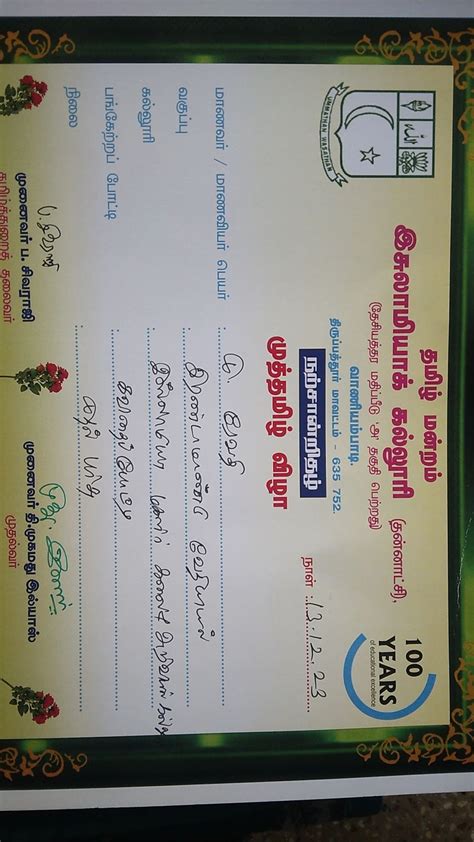 தமிழ் மன்றம்
இசுலாமியாக் கல்லூரி (தன்னாட்சி),
(தேசியத்தர மதிப்பீடு 'அ' தகுதி பெற்றது)
வாணியம்பாடி,
திருப்பத்தூர் மாவட்டம் - 635 752.
நற்சான்றிதழ்
முத்தமிழ் விழா
UMMATHAN WASATHAN
100
YEARS
of educational excellence
நாள் : 13.12.23
மாணவர் / மாணவியர் பெயர் :
வகுப்பு : இரண்டாமாண்டு வேதியியல்
கல்லூரி : இசுலாமியா மகளிர் கலை அறிவியல்
பங்கேற்றப் போட்டி : கவிதைப்போட்டி
நிலை :
முனைவர் ப. சிவராஜி
தமிழ்த்துறைத் தலைவர்
முனைவர் தி.முகமது இல்யாஸ்
முதல்வர்